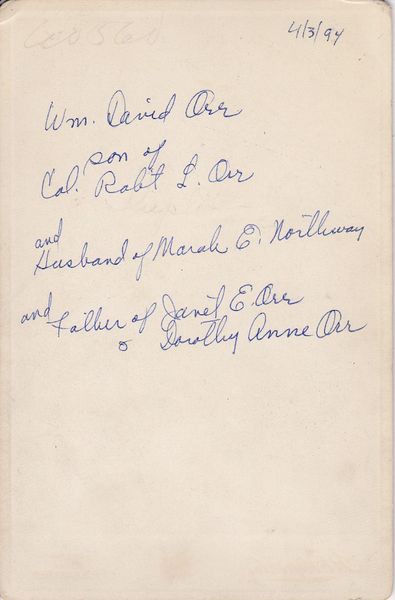 4/3/94
Wm. David Orr
son of
Col. Robt L. Orr
and
Husband of Marah E. Northway
and
Father of Janet E. Orr
& Dorothy Anne Orr